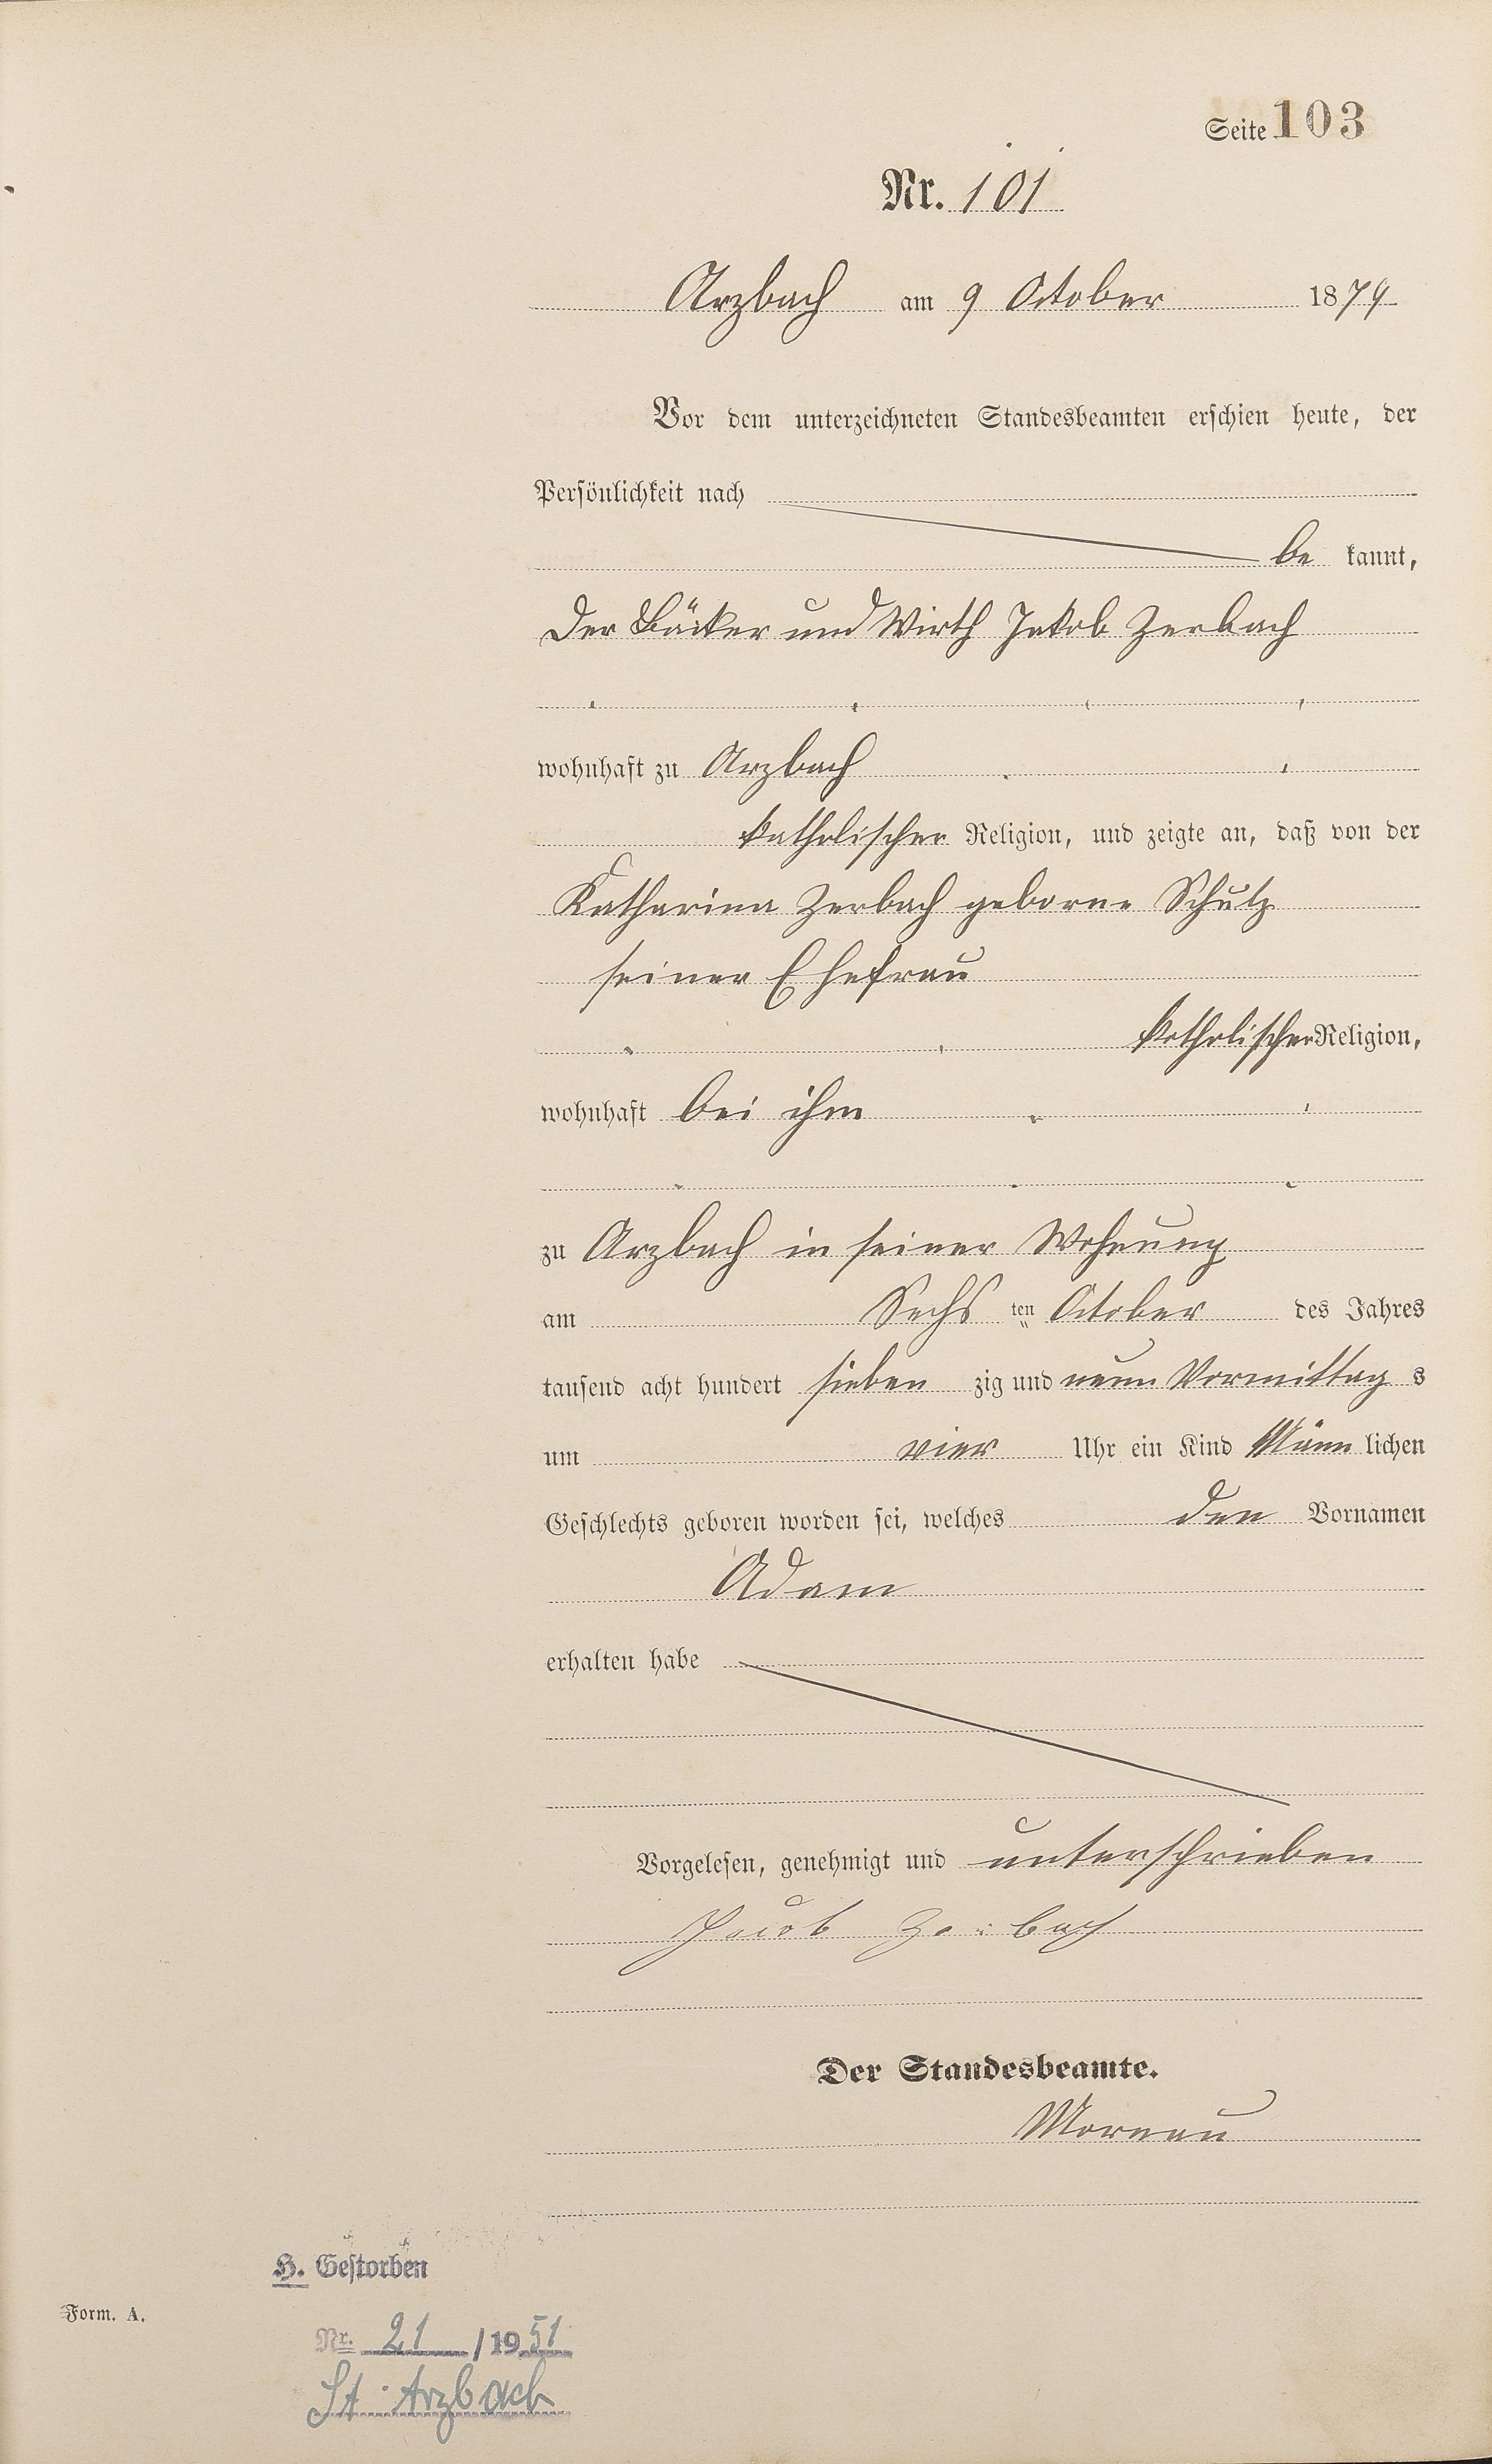 Seite 103
Nr. 101
Arzbach am 9 October 1879
Vor dem unterzeichneten Standesbeamten erschien heute, der
Persönlichkeit nach
be kannt,
Der Bäcker und Wirth Jakob Zerbach
wohnhaft zu Arzbach
katholischer Religion, und zeigte an, daß von der
Katharina Zerbach geborne Schulz
seiner Ehefrau
katholischer Religion,
wohnhaft bei ihm
zu Arzbach in seiner Wohnung
am Sechs ten October des Jahres
tausend acht hundert sieben zig und neun Vormittag s
um vier Uhr ein Kind Männ lichen
Geschlechts geboren worden sei, welches den Vornamen
Adam
erhalten habe
Vorgelesen, genehmigt und unterschrieben
Jacob Zerbach
Der Standesbeamte.
H. Gestorben
Form. A.
Nr. 21 / 1951
St. Arzbach